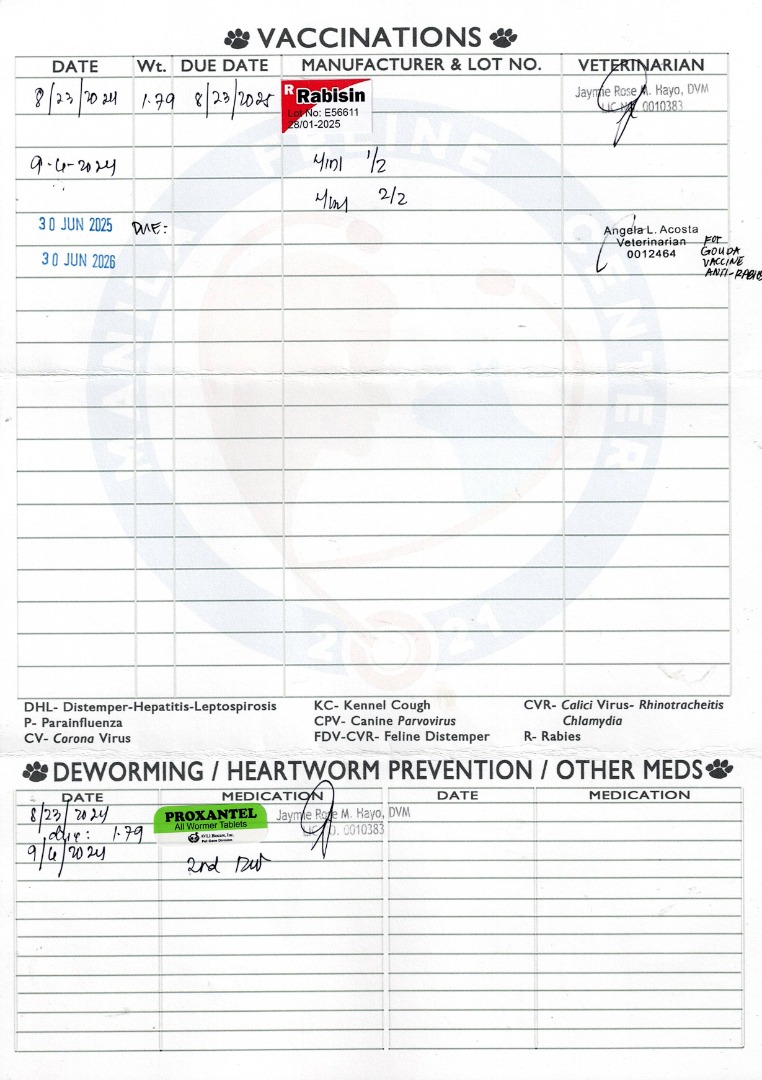 VACCINATIONS
DATE Wt. DUE DATE MANUFACTURER & LOT NO. VETERINARIAN
8/23/2024 1.79 8/23/2025 R Rabisin Jaymie Rose M. Hayo, DVM
Lot No: E56611 LIC NO. 0010383
28/01-2025
9-6-2024 1/2
2/2
30 JUN 2025 DUE: Angela L. Acosta
Veterinarian
30 JUN 2026 0012464
FOR
GOUDA
VACCINE
ANTI-RABIES
MANILA FELINE CENTER
2021
DHL- Distemper-Hepatitis-Leptospirosis KC- Kennel Cough CVR- Calici Virus- Rhinotracheitis
P- Parainfluenza CPV- Canine Parvovirus Chlamydia
CV- Corona Virus FDV-CVR- Feline Distemper R- Rabies
DEWORMING / HEARTWORM PREVENTION / OTHER MEDS
DATE MEDICATION DATE MEDICATION
8/23/2024 PROXANTEL Jaymie Rose M. Hayo, DVM
due: 1.79 All Wormer Tablets LIC NO. 0010383
9/6/2024 2nd DW